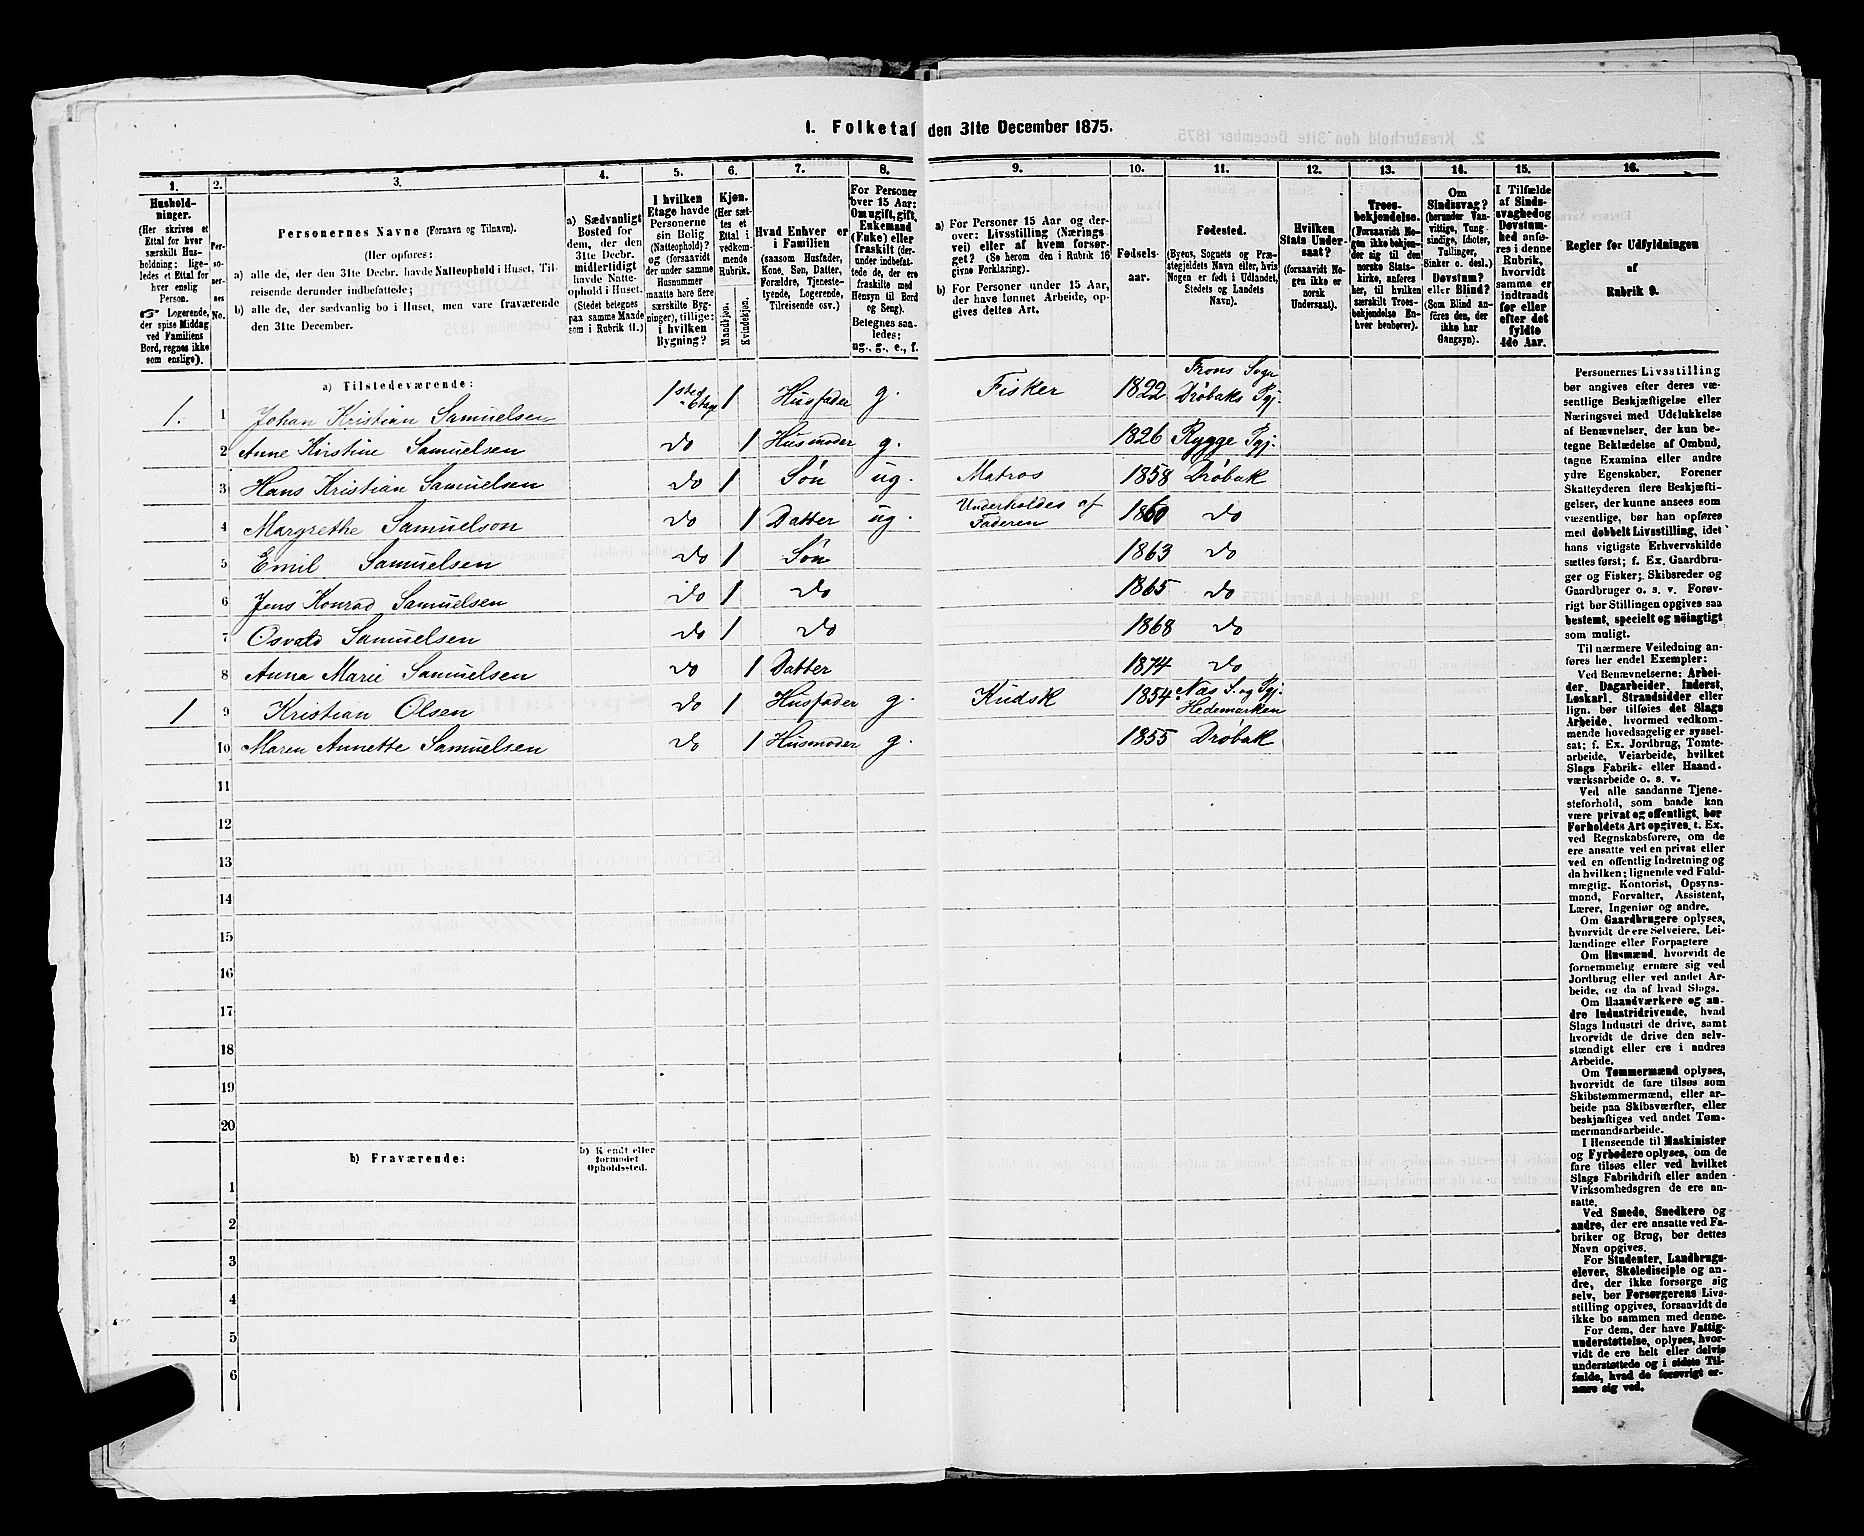 1. Folketal den 31te December 1875.
1. 2. 3. 4. 5. 6. 7. 8. 9. 10. 11. 12. 13. 14. 15. 16.
Hushold-
ninger.
(Her skrives et
Ettal for hver
særskilt Hus-
holdning; lige-
ledes et Ettal for
hver enslig
Person.
☞ Logerende,
der spise Middag
ved Familiens
Bord, regnes ikke
som enslige).
Per-
so-
ner-
nes
No.
Personernes Navne (Fornavn og Tilnavn).
(Her opføres:
a) alle de, der den 31te Decbr. havde Natteophold i Huset, Til-
reisende derunder indbefattede;
b) alle de, der sædvanlig bo i Huset, men vare fraværende
den 31te December.
a) Sædvanligt
Bosted for
dem, der den
31te Decbr.
midlertidigt
havde Natte-
ophold i Huset.
(Stedet betegnes
paa samme Maade
som i Rubrik 11.)
I hvilken
Etage havde
Personerne
sin Bolig
(Natteophold)?
og (forsaavidt
der under samme
Husnummer
maatte høre flere
særskilte Byg-
ninger), tillige:
i hvilken
Bygning?
Kjøn.
(Her sæt-
tes et
Ettal i
vedkom-
mende
Rubrik.
Mandkjøn.
Kvindekjøn.
Hvad Enhver er
i Familien
(saasom Husfader,
Kone, Søn, Datter,
Forældre, Tjeneste-
tyende, Logerende,
Tilreisende osv.)
For Personer
over 15 Aar:
Om ugift, gift,
Enkemand
(Enke) eller
fraskilt (der-
under indbefat-
tede de, der ere
fraskilte med
Hensyn til Bord
og Seng).
Betegnes saa-
ledes:
ug., g., e., f.
a) For Personer 15 Aar og der-
over: Livsstilling (Nærings-
vei) eller af hvem forsør-
get? (Se herom den i Rubrik 16
givne Forklaring).
b) For Personer under 15 Aar,
der have lønnet Arbeide, op-
gives dettes Art.
Fødsels-
aar.
Fødested.
(Byens, Sognets og Præ-
stegjeldets Navn eller, hvis
Nogen er født i Udlandet,
Stedets og Landets
Navn).
Hvilken
Stats Under-
saat?
(forsaavidt No-
gen ikke er
norsk
Undersaat).
Troes-
bekjendelse.
(Forsaavidt No-
gen ikke bekjen-
der sig til den
norske Stats-
kirke, anføres
her, til hvilken
særskilt Troes-
bekjendelse En-
hver henhører).
Om
Sindssvag?
(herunder Van-
vittige, Tung-
sindige, Idioter,
Tullinger,
Sinker o. desl.)
Døvstum?
eller Blind?
(Som Blind an-
føres den, der
ikke har
Gangsyn).
I Tilfælde
af Sinds-
svaghed og
Døvstum-
hed anfø-
res i denne
Rubrik,
hvorvidt
samme er
indtraadt
før eller
efter det
fyldte
4de Aar.
Regler for Udfyldningen
af
Rubrik 9.
a) Tilstedeværende:
1. 1 Johan Kristian Samuelsen 1sted Etag 1 Husfader g. Fisker 1822 Frons Sogn Drøbaks Pgj.
2 Anne Kirstine Samuelsen do 1 Husmoder g. 1826 Rygge Pgj.
3 Hans Kristian Samuelsen do 1 Søn ug. Matros 1858 Drøbak
4 Margrethe Samuelson do 1 Datter ug. Underholdes af Faderen 1860 do
5 Emil Samuelsen do 1 Søn 1863 do
6 Jens Konrad Samuelsen do 1 do 1865 do
7 Osvald Samuelsen do 1 do 1868 do
8 Anna Marie Samuelsen do 1 Datter 1874 do
1 9 Kristian Olsen do 1 Husfader g. Kudsk 1854 Næs S. og Pgj. Hedemarken
10 Maren Annette Samuelsen do 1 Husmoder g. 1855 Drøbak
11
12
13
14
15
16
17
18
19
20
b) Fraværende:
b) Kjendt eller
formodet
Opholdssted.
1
2
3
4
5
6
Personernes Livsstilling
bør angives efter deres væ-
sentlige Beskjæftigelse eller
Næringsvei med Udelukkelse
af Benævnelser, der kun be-
tegne Beklædelse af Ombud,
tagne Examina eller andre
ydre Egenskaber. Forener
Skatteyderen flere Beskjæfti-
gelser, der kunne ansees som
væsentlige, bør han opføres
med dobbelt Livsstilling, idet
hans vigtigste Erhvervskilde
sættes først; f. Ex. Gaardbru-
ger og Fisker; Skibsreder og
Gaardbruger o. s. v. Forøv-
rigt bør Stillingen opgives saa
bestemt, specielt og nöiagtigt
som muligt.
Til nærmere Veiledning an-
føres her endel Exempler:
Ved Benævnelserne: Arbei-
der, Dagarbeider, Inderst,
Løskarl, Strandsidder eller
lign. bør tilføies det Slags
Arbeide, hvormed vedkom-
mende hovedsagelig er syssel-
sat; f. Ex. Jordbrug, Tomte-
arbeide, Veiarbeide, hvilket
Slags Fabrik- eller Haand-
værksarbeide o. s. v.
Ved alle saadanne Tjene-
steforhold, som baade kan
være privat og offentligt, bør
Forholdets Art opgives, t. Ex.
ved Regnskabsførere, om de
ere ansatte ved en privat eller
ved en offentlig Indretning og
da hvilken; lignende ved Fuld-
mægtig, Kontorist, Opsyns-
mand, Forvalter, Assistent,
Lærer, Ingeniør og andre.
Om Gaardbrugere oplyses,
hvorvidt de ere Selveiere, Lei-
lændinge eller Forpagtere
Om Husmænd, hvorvidt de
fornemmelig ernære sig ved
Jordbrug eller ved andet Ar-
beide, og da af hvad Slags.
Om Haandværkere og an-
dre Industridrivende, hvad
Slags Industri de drive, samt
hvorvidt de drive den selv-
stændigt eller ere i andres
Arbeide.
Om Tømmermænd oplyses,
hvorvidt de fare tilsøs som
Skibstømmermænd, eller ar-
beide paa Skibsværfter, eller
beskjæftiges ved andet Tøm-
mermandsarbeide.
I Henseende til Maskinister
og Fyrbødere oplyses, om de
fare tilsøs eller ved hvilket
Slags Fabrikdrift eller anden
Virksomhedsgren de ere an-
satte.
Ved Smede, Snedkere og
andre, der ere ansatte ved Fa-
briker og Brug, bør dettes
Navn opgives.
For Studenter, Landbrugs-
elever, Skoledisciple og an-
dre, der ikke forsørge sig
selv, bør Forsørgerens Livs-
stilling opgives, forsaavidt de
ikke bo sammen med denne.
For dem, der have Fattig-
understøttelse, oplyses, hvor-
vidt de ere helt eller delvis
understøttede og i sidste Til-
fælde, hvad de forøvrigt er-
nære sig ved.